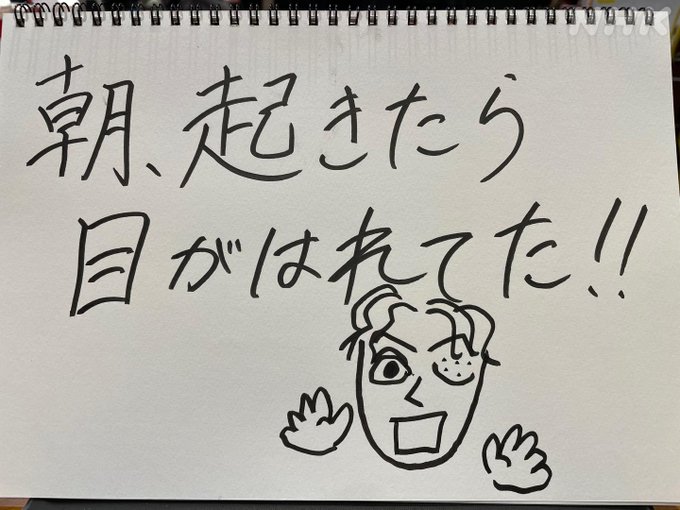 朝、起きたら
目がはれてた!!
NHK